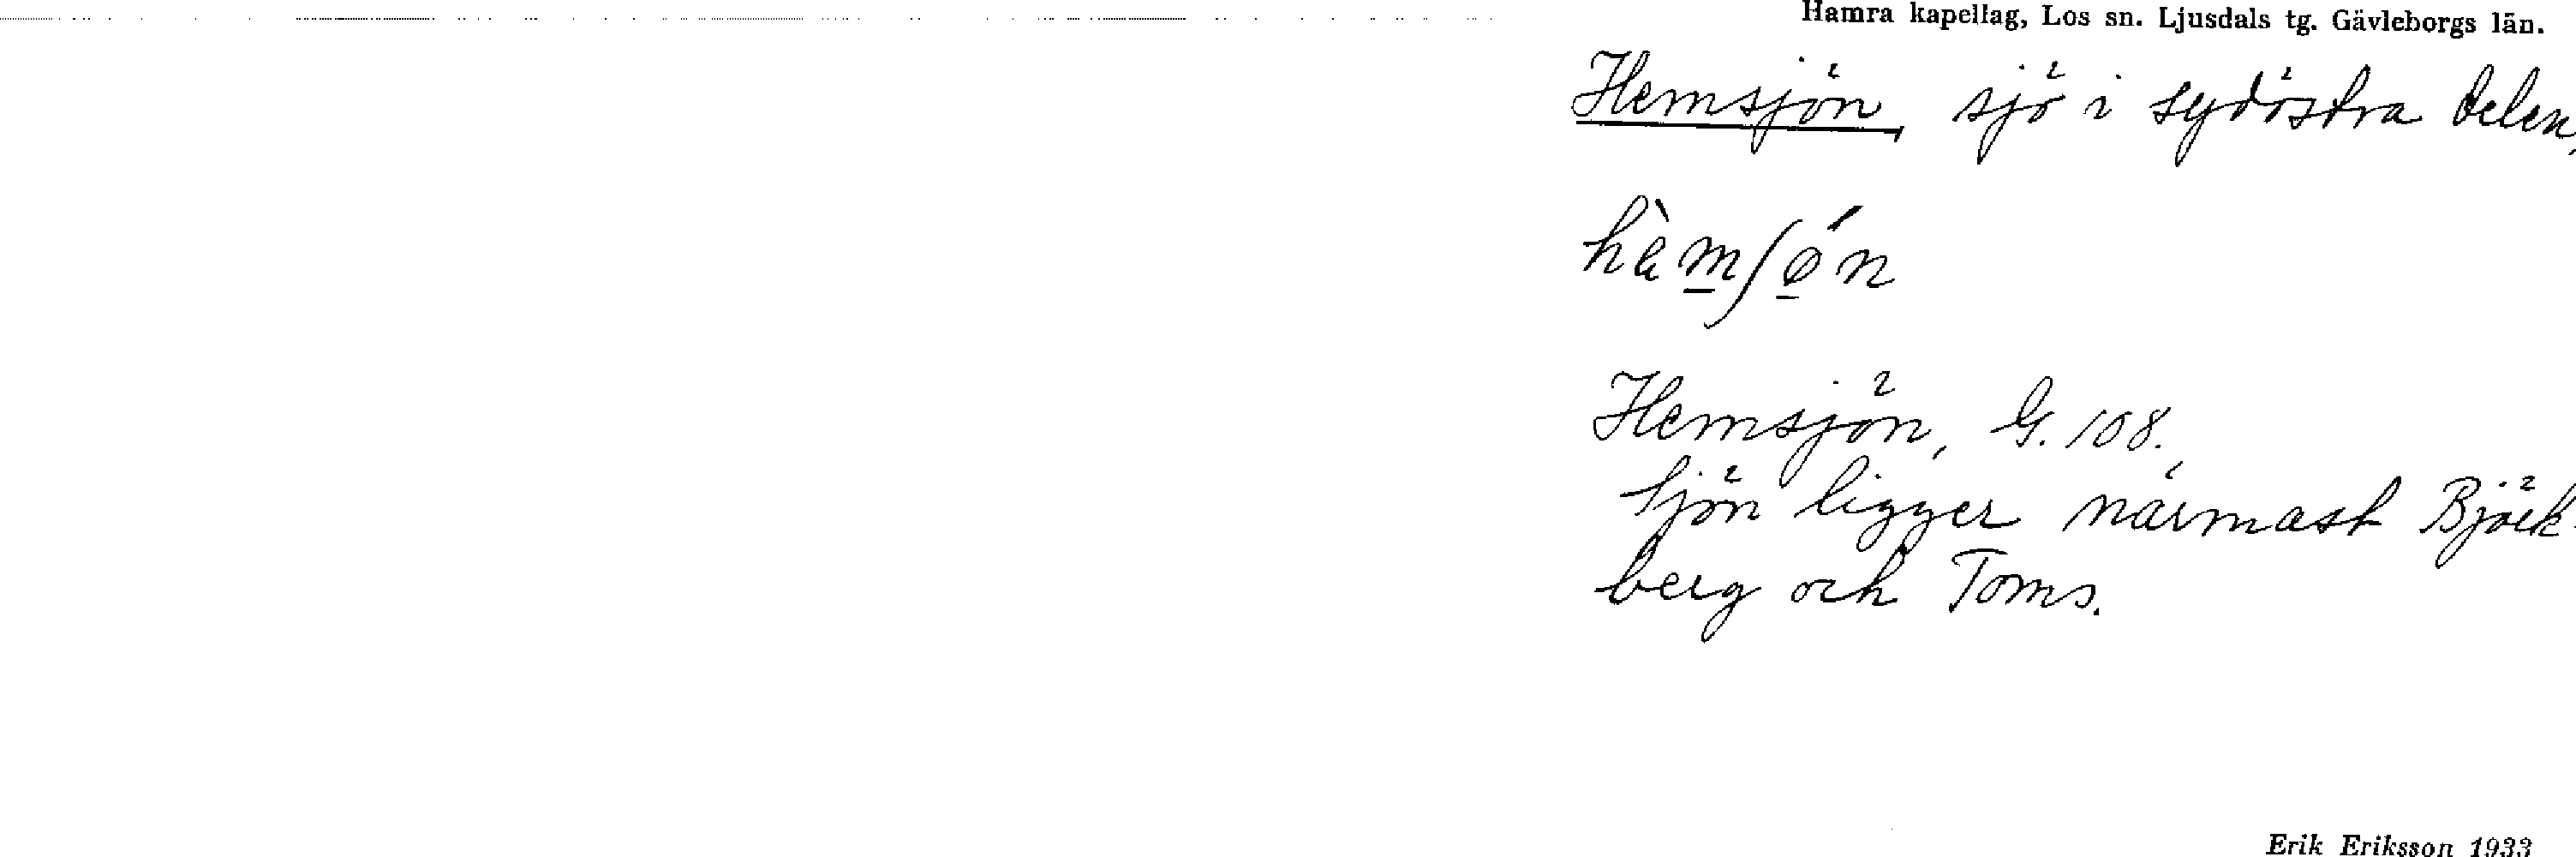 Hamra kapellag, Los sn. Ljusdals tg. Gävleborgs län.
Hemsjön, sjö i sydöstra delen,
hèmʃǿn
Hemsjön, G. 108.
Sjön ligger närmast Björk-
berg och Toms.
Erik Eriksson 1933